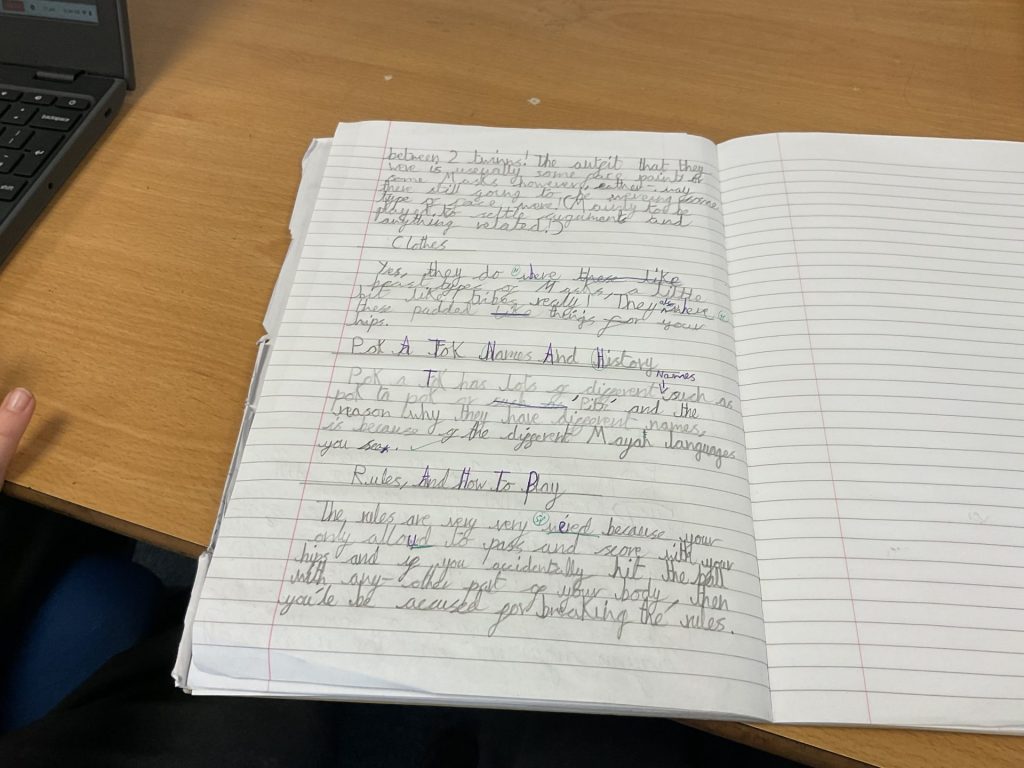 between 2 twinns! The outfit that they
were is usually some face paint &
some Masks however, either-way
there still going to be wereing some
type of face were! (Mously to be
played to settle arguments and
anything related!)
Clothes
Yes, they do were these like
beast types of Masks, a little
bit like tribes really! They also were
these padded like things for your
hips.
Pok A Tok Names And History
Names
Pok a Tok has lots of different such as
pok ta pok or such as 'Pitz' and the
reason why they have different names,
is because of the different Mayah languages
you see.
Rules, And How To Play
The rules are very very weird because your
only allowd to pass and score with your
hips and if you accidentally hit the ball
with any-other part of your body, then
you'le be accused for breaking the rules.
backspace
shift